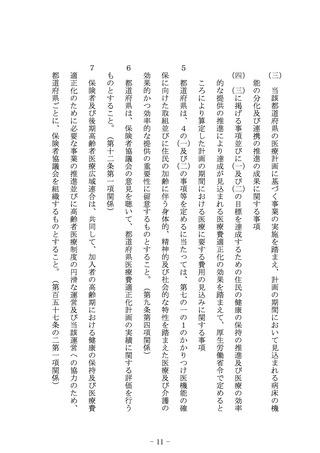 ㈢ 当該都道府県の医療計画に基づく事業の実施を踏まえ、計画の期間において見込まれる病床の機
能の分化及び連携の推進の成果に関する事項
㈣ ㈢に掲げる事項並びに㈠及び㈡の目標を達成するための住民の健康の保持の推進及び医療の効率
的な提供の推進により達成が見込まれる医療費適正化の効果を踏まえて、厚生労働省令で定めると
ころにより算定した計画の期間における医療に要する費用の見込みに関する事項
5 都道府県は、4の㈠及び㈡の事項等を定めるに当たっては、第七の一の1のかかりつけ医機能の確
保に向けた取組並びに住民の加齢に伴う身体的、精神的及び社会的な特性を踏まえた医療及び介護の
効果的かつ効率的な提供の重要性に留意するものとすること。（第九条第四項関係）
6 都道府県は、保険者協議会の意見を聴いて、都道府県医療費適正化計画の実績に関する評価を行う
ものとすること。（第十二条第一項関係）
7 保険者及び後期高齢者医療広域連合は、共同して、加入者の高齢期における健康の保持及び医療費
適正化のために必要な事業の推進並びに高齢者医療制度の円滑な運営及び当該運営への協力のため、
都道府県ごとに、保険者協議会を組織するものとすること。（第百五十七条の二第一項関係）
- 11 -